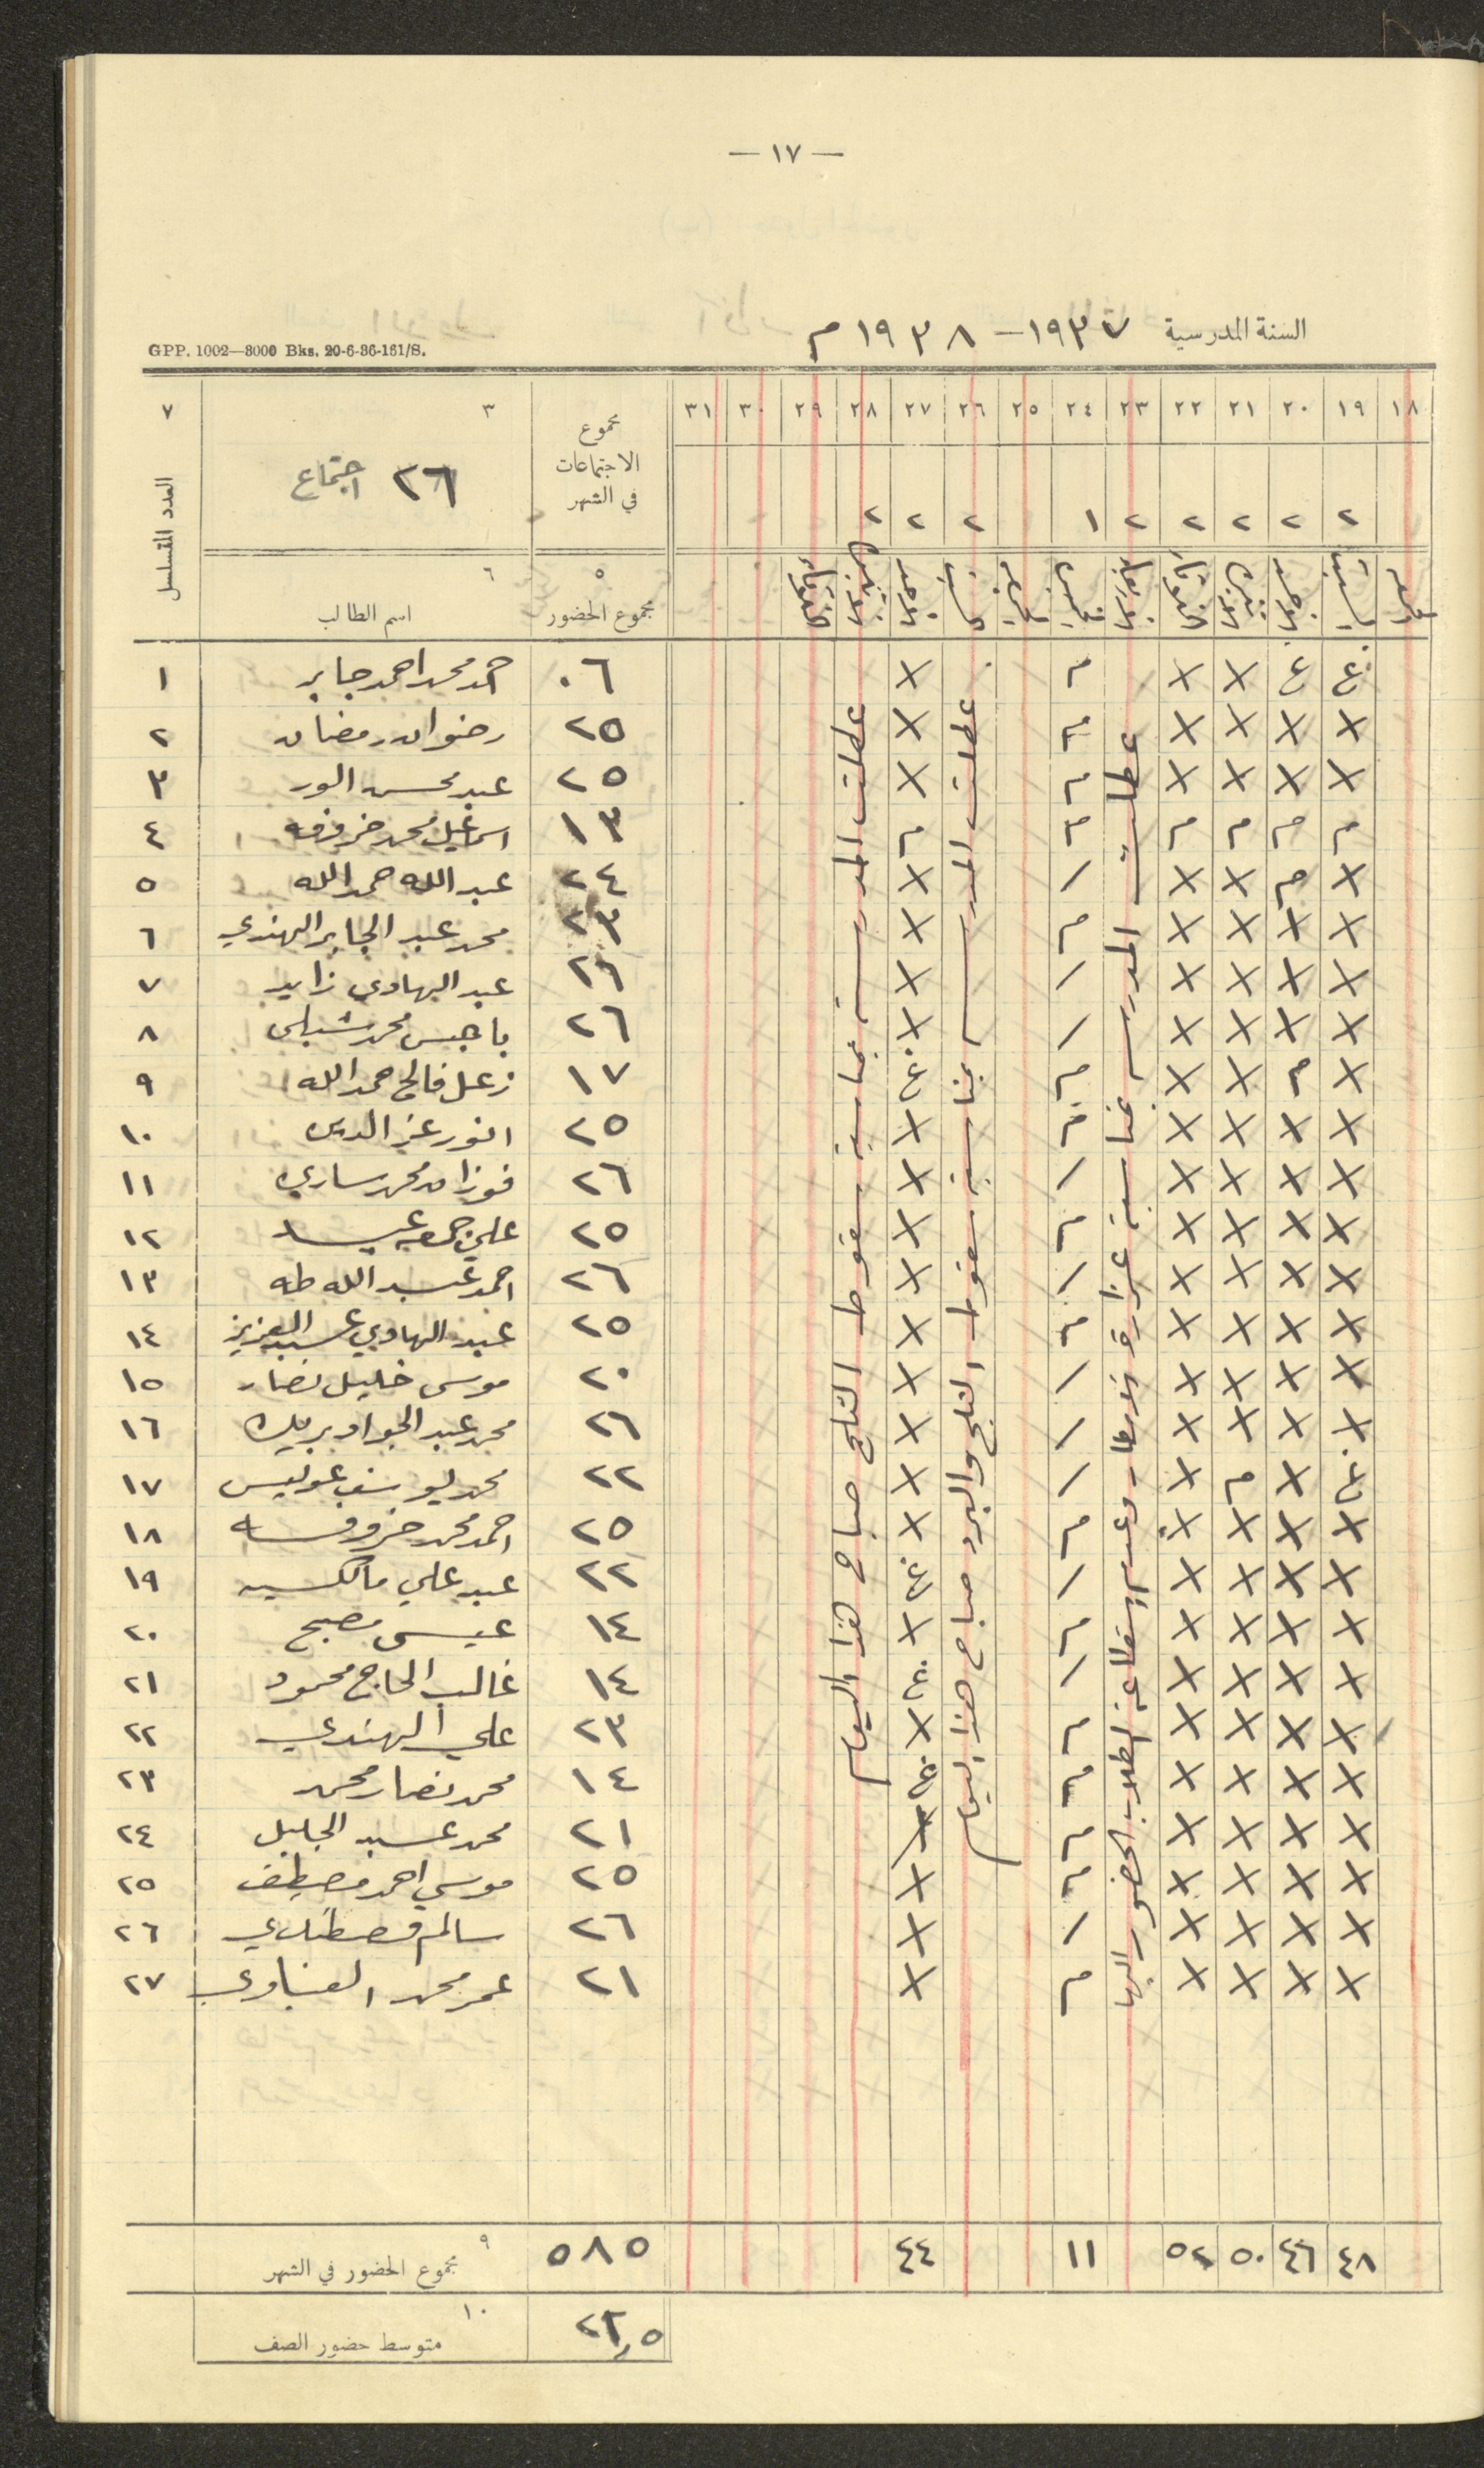 — ١٧ —
السنة المدرسية ١٩٣٧ — ١٩٣٨ م
GPP. 1002—3000 Bks. 20-6-36-161/S.
١٨ ١٩ ٢٠ ٢١ ٢٢ ٢٣ ٢٤ ٢٥ ٢٦ ٢٧ ٢٨ ٢٩ ٣٠ ٣١ مجموع الاجتماعات في الشهر ٣ ٧
٢٦ اجتماع
العدد المتسلسل
٢ ٢ ٢ ٢ ٢ ١ ٢ ٢ ٢
الجمعة السبت الاحد الاثنين الثلاثاء الاربعاء الخميس الجمعة السبت الاحد الاثنين الثلاثاء
٥ مجموع الحضور ٦ اسم الطالب
غ غ × × م × ٠٦ احمد محمد احمد جابر ١
× × × × م × ٢٥ رضوان رمضان ٢
× × × × م × ٢٥ عبد محسن الور ٣
م م م م م م ١٣ اسماعيل محمد خروفه ٤
× م × × / × ٢٤ عبد الله حمد الله ٥
× × × × م × ٢٣ محمد عبد الجابر الهندي ٦
× × × × / × ٢٦ عبد الهادي زايد ٧
× × × × / × ٢٦ باجس محمد شبلي ٨
× م × × م غ ١٧ زعل فالح حمد الله ٩
× × × × م × ٢٥ انور عز الدين ١٠
× × × × / × ٢٦ فوزان محمد ساري ١١
× × × × م × ٢٥ علي جمعه عيد ١٢
× × × × / × ٢٦ احمد عبد الله طه ١٣
× × × × م × ٢٥ عبد الهادي عبد العزيز ١٤
× × × × / × ٢٠ موسى خليل نصار ١٥
× × × × / × ٢٦ محمد عبد الجواد بريك ١٦
غ × م × / × ٢٢ محمد يوسف عويس ١٧
× × × × م × ٢٥ احمد محمد خروفه ١٨
× × × × / غ ٢٢ عبد علي مالكيه ١٩
× × × × م × ١٤ عيسى مصبح ٢٠
× × × × / غ ١٤ غالب الحاج محمود ٢١
× × × × م × ٢٣ علي الهندي ٢٢
× × × × م غ ١٤ محمد نصار محمد ٢٣
× × × × م × ٢١ محمد عبد الجليل ٢٤
× × × × م × ٢٥ موسى احمد مصطفى ٢٥
× × × × / × ٢٦ سالم قسطندي ٢٦
× × × × م × ٢١ عمر محمد العيناوي ٢٧
عطلت المدرسة بمناسبة غزارة الامطار وعدم استطاعة الطلاب الحضور اليها
عطلت المدرسه بمناسبة سقوط الثلج والبرد صباح هذا اليوم
عطلت المدرسة بمناسبة سقوط الثلج صباح هذا اليوم
٤٨ ٤٦ ٥٠ ٥٢ ١١ ٤٤ ٥٨٥ ٩ مجموع الحضور في الشهر
٢٢,٥ ١٠ متوسط حضور الصف